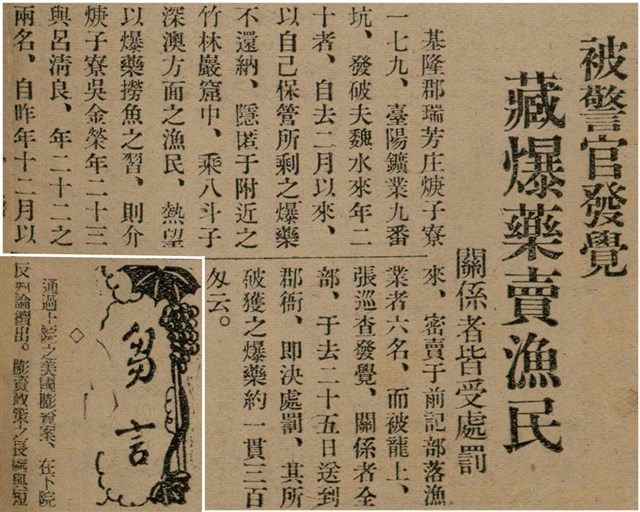 被警官發覺
藏爆藥賣漁民
關係者皆受處罰
基隆郡瑞芳庄焿子寮
一七九、臺陽鑛業九番
坑、發破夫魏水來年二
十者、自去二月以來、
以自己保管所剩之爆藥
不還納、隱匿于附近之
竹林巖窟中、乘八斗子
深澳方面之漁民、熱望
以爆藥撈魚之習、則介
焿子寮吳金榮年二十三
與呂淸良、年二十二之
兩名、自昨年十二月以
來、密賣于前記部落漁
業者六名、而被龍上、
張巡查發覺、關係者全
部、于去二十五日送到
郡衙、即決處罰、其所
破獲之爆藥約一貫三百
匁云。
芻言
◇
通過上院之美國膨資案、在下院
反論續出。膨資政策之長處與短